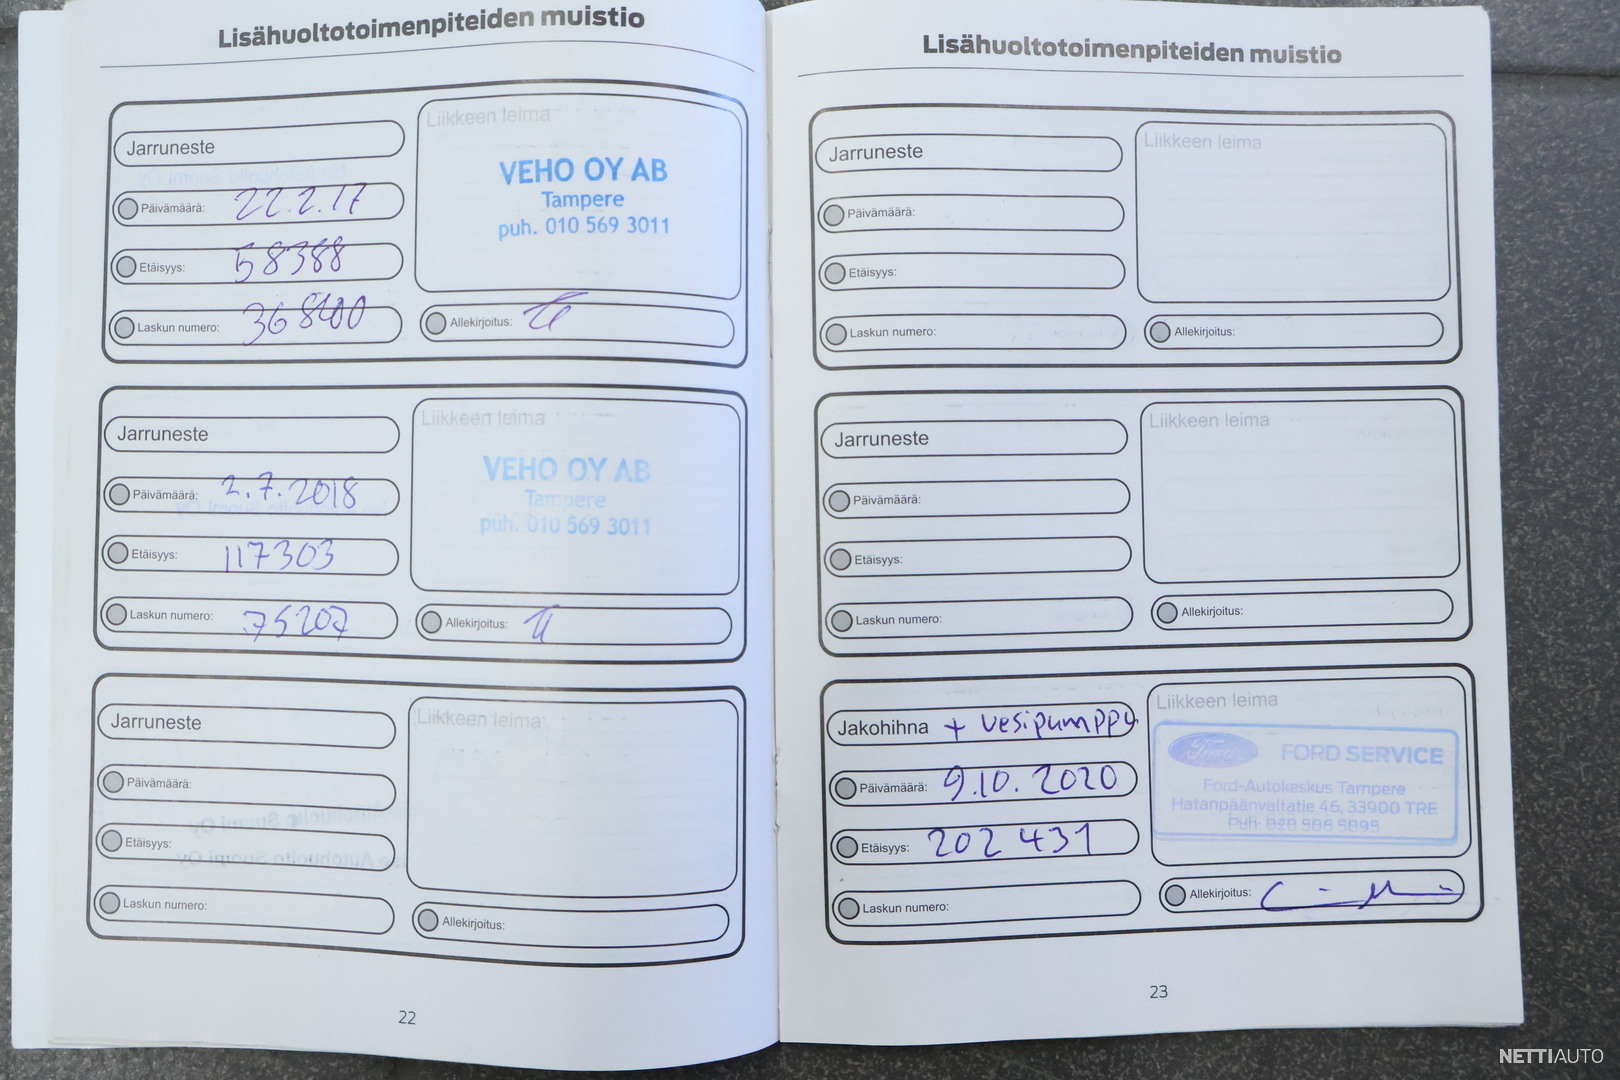 Lisähuoltotoimenpiteiden muistio
Jarruneste
Päivämäärä: 22.2.17
Etäisyys: 58388
Laskun numero: 368400
Liikkeen leima
VEHO OY AB
Tampere
puh. 010 569 3011
Allekirjoitus:
Jarruneste
Päivämäärä: 2.7.2018
Etäisyys: 117303
Laskun numero: 75207
Liikkeen leima
VEHO OY AB
Tampere
puh. 010 569 3011
Allekirjoitus:
Jarruneste
Päivämäärä:
Etäisyys:
Laskun numero:
Liikkeen leima
Allekirjoitus:
22
Lisähuoltotoimenpiteiden muistio
Jarruneste
Päivämäärä:
Etäisyys:
Laskun numero:
Liikkeen leima
Allekirjoitus:
Jarruneste
Päivämäärä:
Etäisyys:
Laskun numero:
Liikkeen leima
Allekirjoitus:
Jakohihna + vesipumppu
Päivämäärä: 9.10.2020
Etäisyys: 202 431
Laskun numero:
Liikkeen leima
Ford FORD SERVICE
Ford-Autokeskus Tampere
Hatanpäänvaltatie 46, 33900 TRE
Puh. 020 506 5095
Allekirjoitus:
23
NETTIAUTO